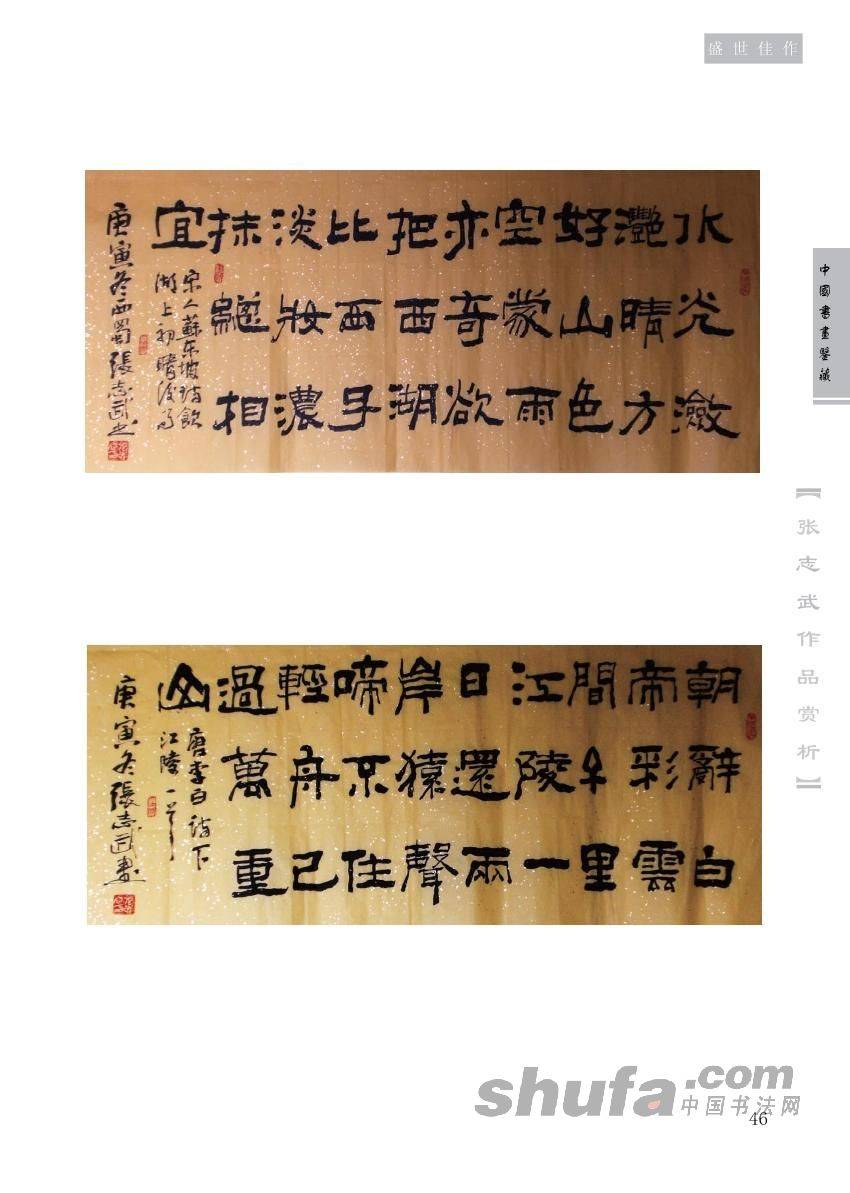 盛世佳作
水光瀲
灩晴方
好山色
空蒙雨
亦奇欲
把西湖
比西子
淡妝濃
抹總相
宜
宋人蘇東坡詩飲
湖上初晴後雨
庚寅冬西蜀張志武書
中國書畫鑒藏
【张志武作品赏析】
朝辭白
帝彩雲
間千里
江陵一
日還兩
岸猿聲
啼不住
輕舟已
過萬重
山
唐李白詩下
江陵一首
庚寅冬張志武書
shufa.com
中国书法网
46